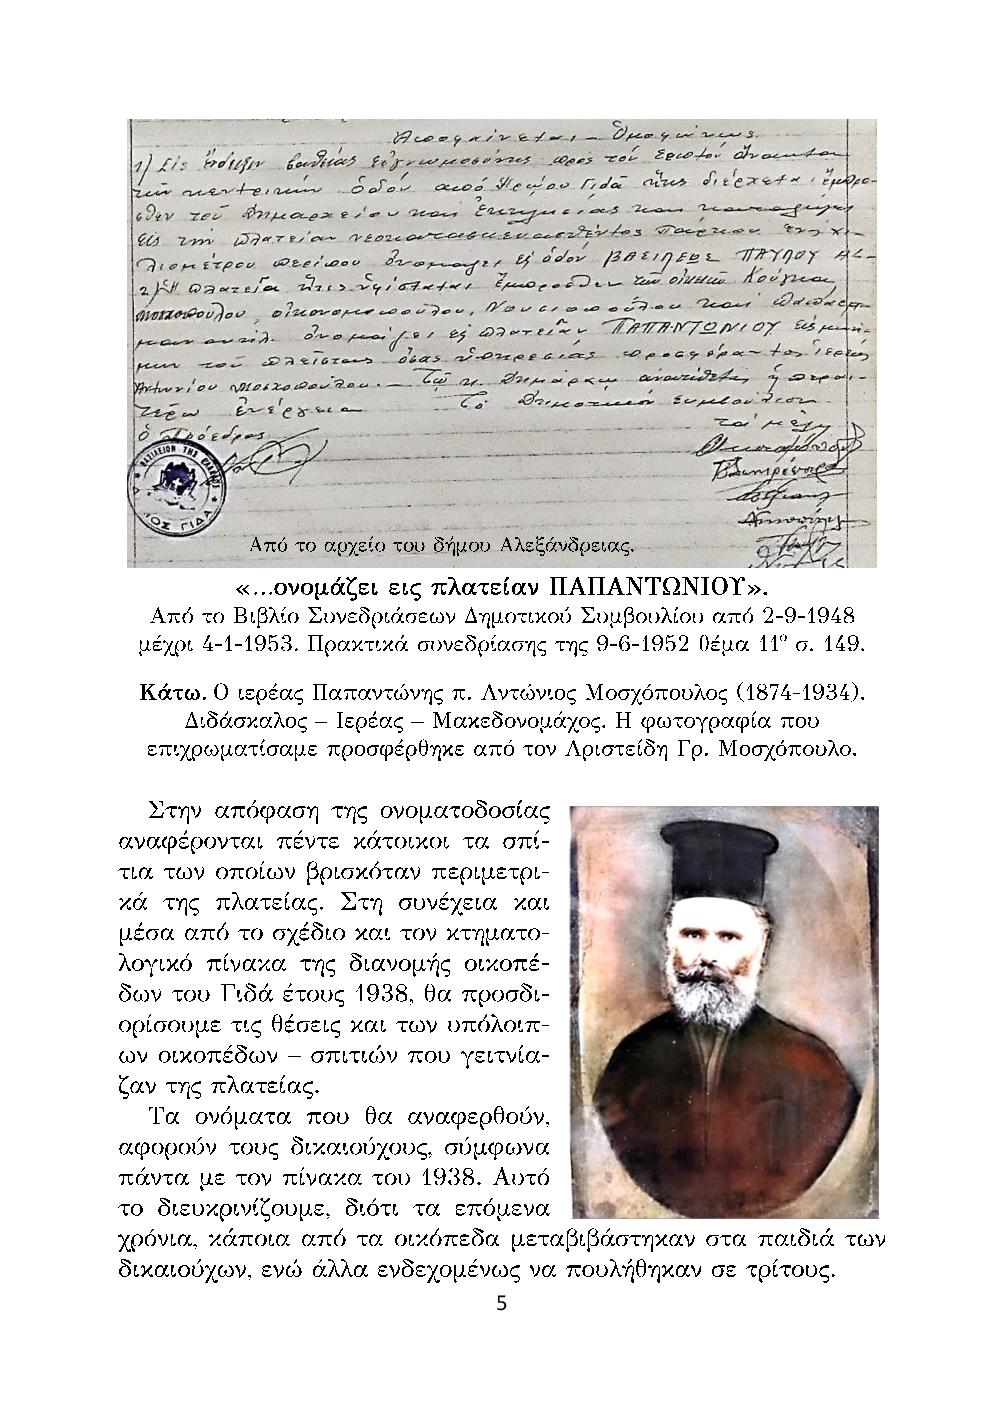 Αποφαίνεται – Ομοφώνως
1) Εις ένδειξιν βαθείας ευγνωμοσύνης προς τον εριστόν Άνακτα
την κεντρικήν οδόν από Ηρώου Γιδά ήτις διέρχεται έμπρο-
σθεν του Δημαρχείου και Εκκλησίας και καταλήγει
εις την πλατείαν νεοκατασκευασθέντος πάρκου ενός χι-
λιομέτρου περίπου ονομάζει εις οδόν ΒΑΣΙΛΕΩΣ ΠΑΥΛΟΥ
2) Η πλατεία ήτις υφίσταται έμπροσθεν των οικιών Κούγκα,
Μοσχοπούλου, Οικονομοπούλου, και
ονομάζει εις πλατείαν ΠΑΠΑΝΤΩΝΙΟΥ εις μνή-
μην του πλείστας όσας υπηρεσίας προσφέραντος ιερέως
Αντωνίου Μοσχοπούλου. – Τω κ. Δημάρχω ανατίθεται η περαι-
τέρω ενέργεια Το Δημοτικόν Συμβούλιον
ο Πρόεδρος τα μέλη
ΒΑΣΙΛΕΙΟΝ ΤΗΣ ΕΛΛΑΔΟΣ
ΓΙΔΑ
Από το αρχείο του δήμου Αλεξάνδρειας.
«...ονομάζει εις πλατείαν ΠΑΠΑΝΤΩΝΙΟΥ».
Από το Βιβλίο Συνεδριάσεων Δημοτικού Συμβουλίου από 2-9-1948
μέχρι 4-1-1953. Πρακτικά συνεδρίασης της 9-6-1952 θέμα 11º σ. 149.
Κάτω. Ο ιερέας Παπαντώνης π. Αντώνιος Μοσχόπουλος (1874-1934).
Διδάσκαλος – Ιερέας – Μακεδονομάχος. Η φωτογραφία που
επιχρωματίσαμε προσφέρθηκε από τον Αριστείδη Γρ. Μοσχόπουλο.
Στην απόφαση της ονοματοδοσίας
αναφέρονται πέντε κάτοικοι τα σπί-
τια των οποίων βρισκόταν περιμετρι-
κά της πλατείας. Στη συνέχεια και
μέσα από το σχέδιο και τον κτηματο-
λογικό πίνακα της διανομής οικοπέ-
δων του Γιδά έτους 1938, θα προσδι-
ορίσουμε τις θέσεις και των υπόλοιπ-
ων οικοπέδων – σπιτιών που γειτνία-
ζαν της πλατείας.
Τα ονόματα που θα αναφερθούν,
αφορούν τους δικαιούχους, σύμφωνα
πάντα με τον πίνακα του 1938. Αυτό
το διευκρινίζουμε, διότι τα επόμενα
χρόνια, κάποια από τα οικόπεδα μεταβιβάστηκαν στα παιδιά των
δικαιούχων, ενώ άλλα ενδεχομένως να πουλήθηκαν σε τρίτους.
5